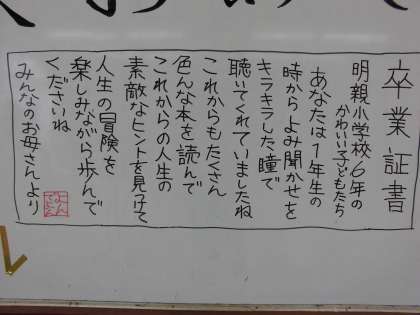 卒業証書
明親小学校6年の
かわいい子どもたち
あなたは1年生の
時からよみ聞かせを
キラキラした瞳で
聴いてくれていましたね
これからもたくさん
色んな本を読んで
これからの人生の
素敵なヒントを見つけて
人生の冒険を
楽しみながら歩んで
くださいね
みんなのお母さんより